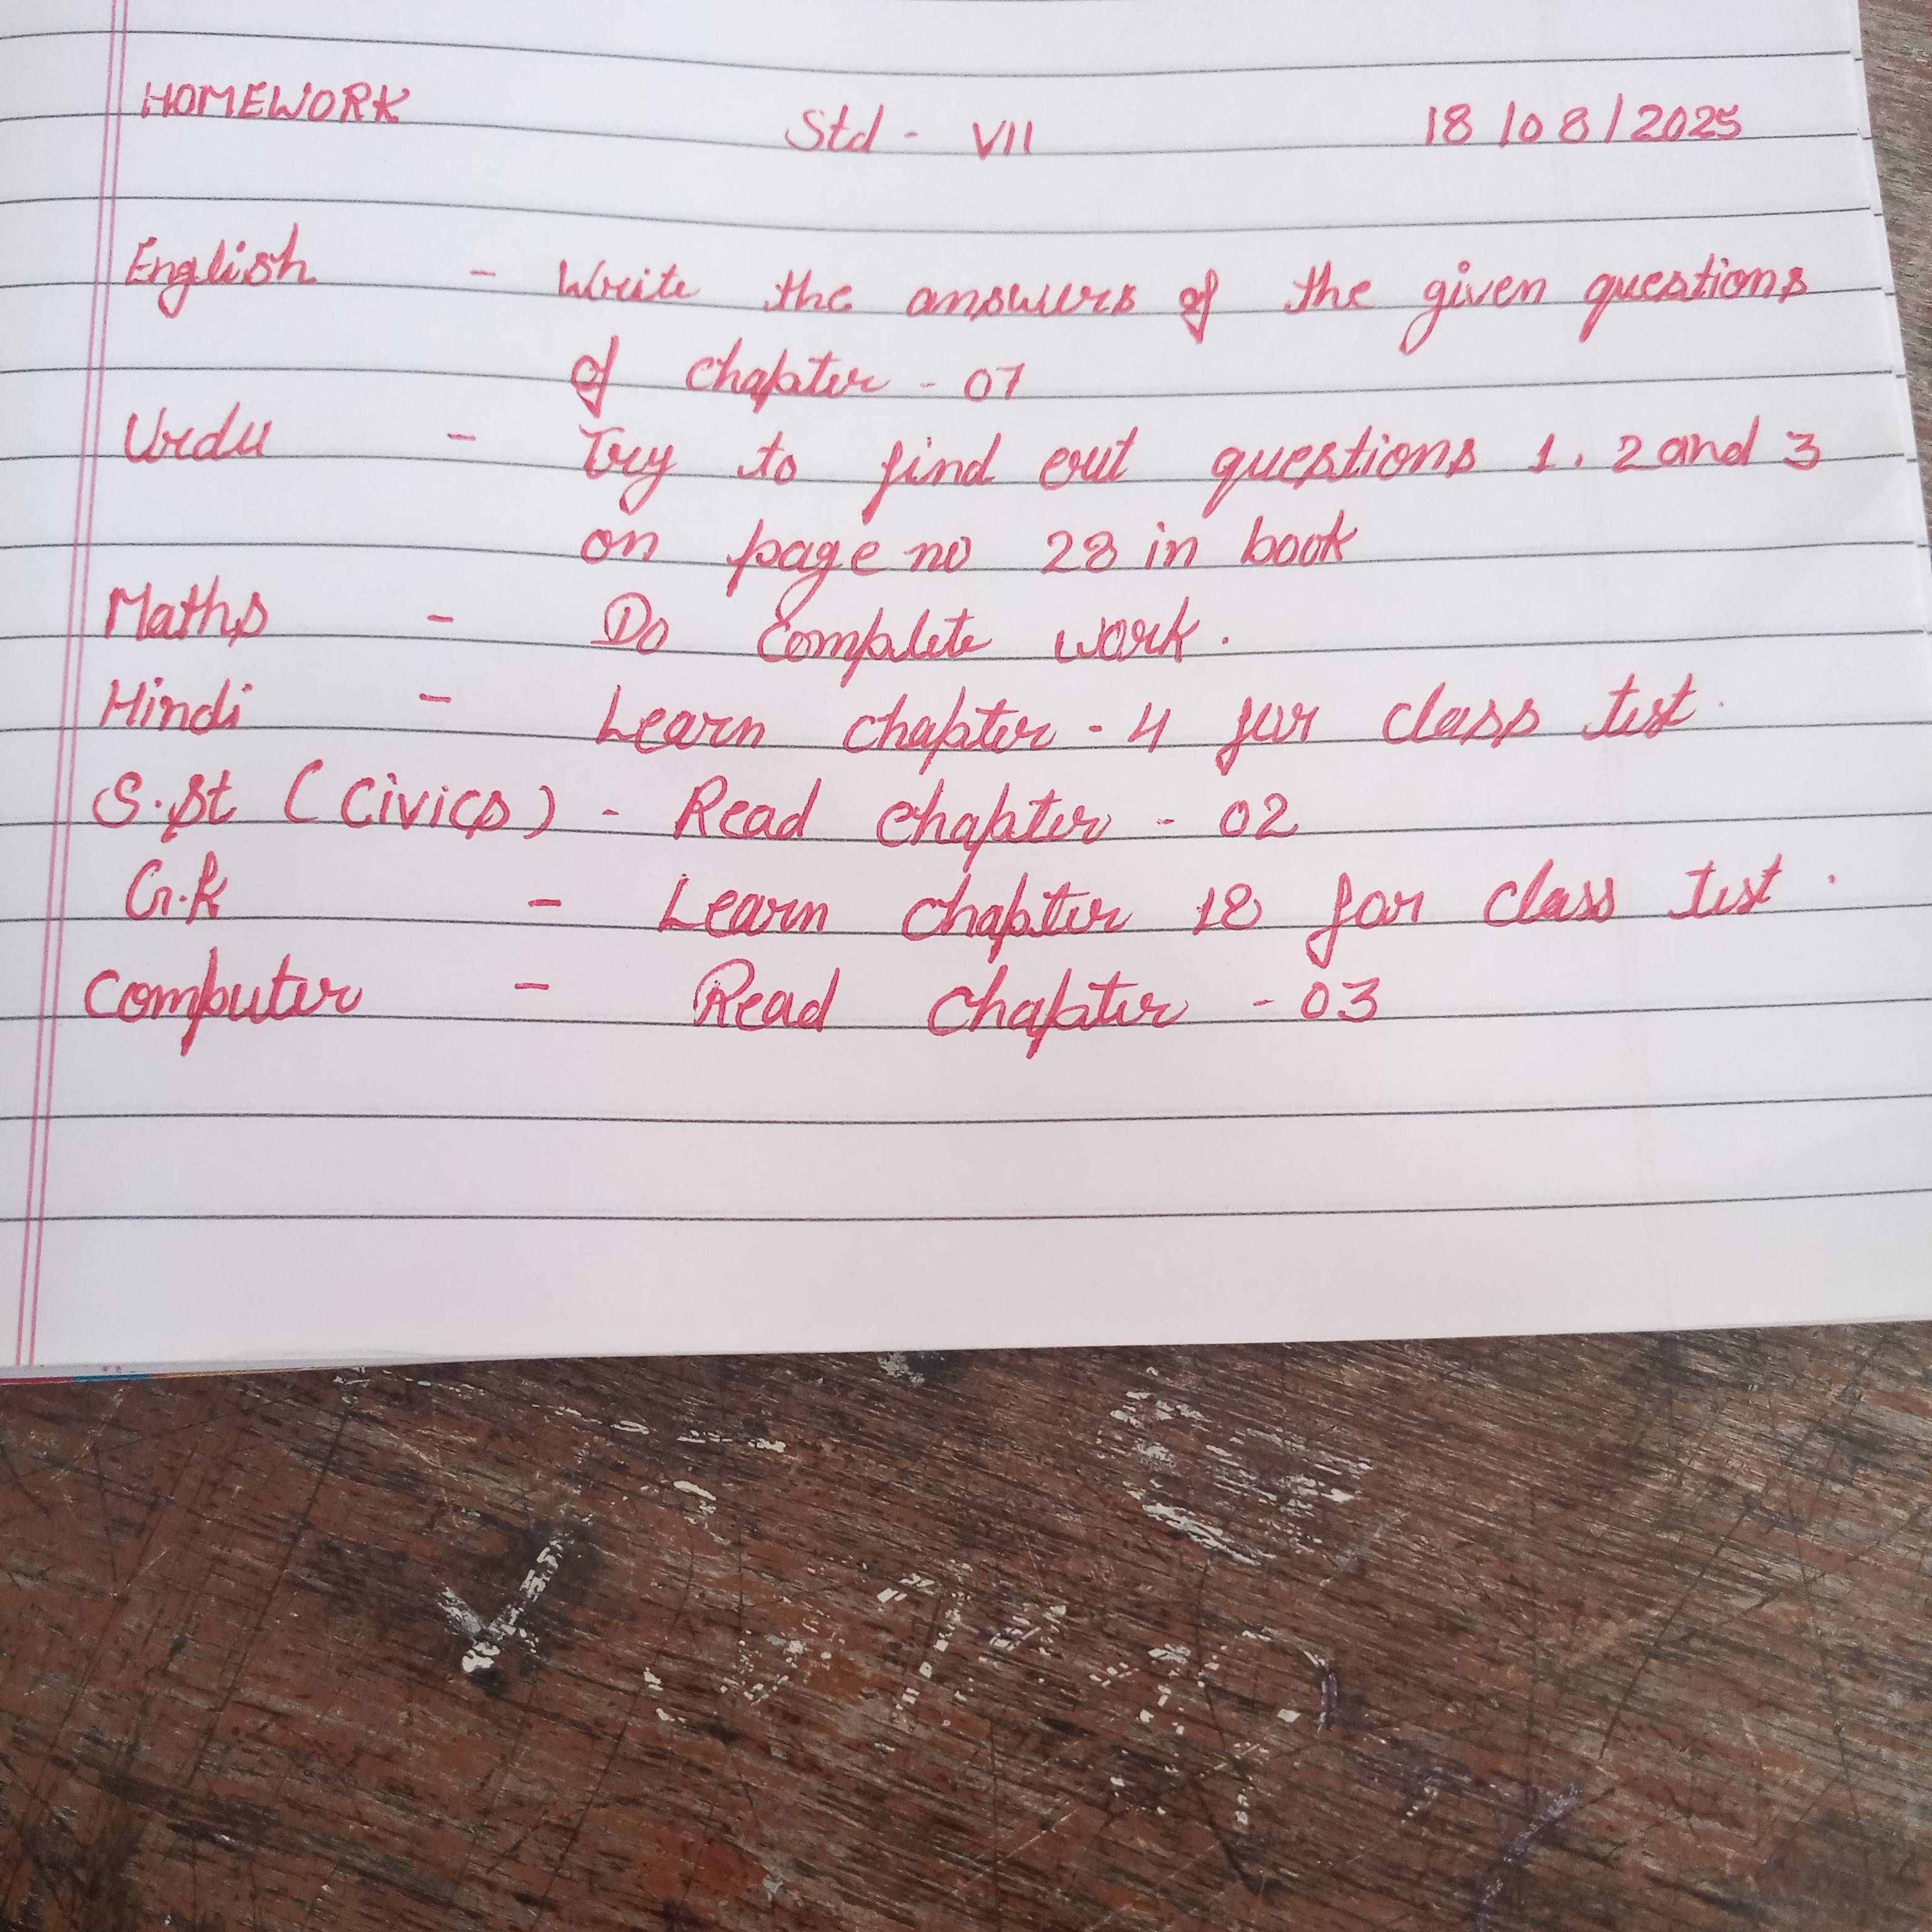 HOMEWORK Std - VII 18/08/2025
English - Write the answers of the given questions
of chapter - 07
Urdu - Try to find out questions 1, 2 and 3
on page no 28 in book
Maths - Do complete work.
Hindi - Learn chapter - 4 for class test.
S.St (Civics) - Read chapter - 02
G.K - Learn chapter 18 for class test.
Computer - Read chapter - 03